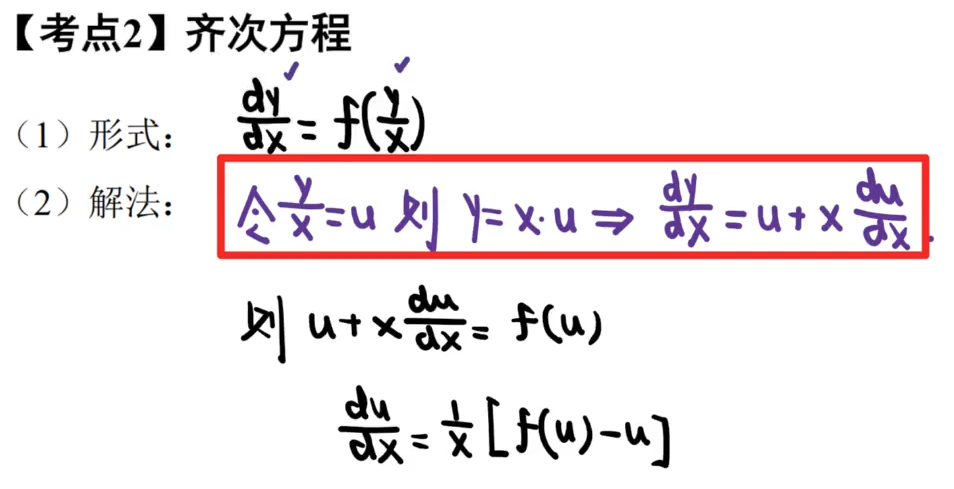 【考点2】齐次方程
（1）形式： dy/dx = f(y/x)
（2）解法： 令 y/x = u 则 y = x·u ⇒ dy/dx = u + x du/dx.
则 u + x du/dx = f(u)
du/dx = 1/x [f(u) − u]